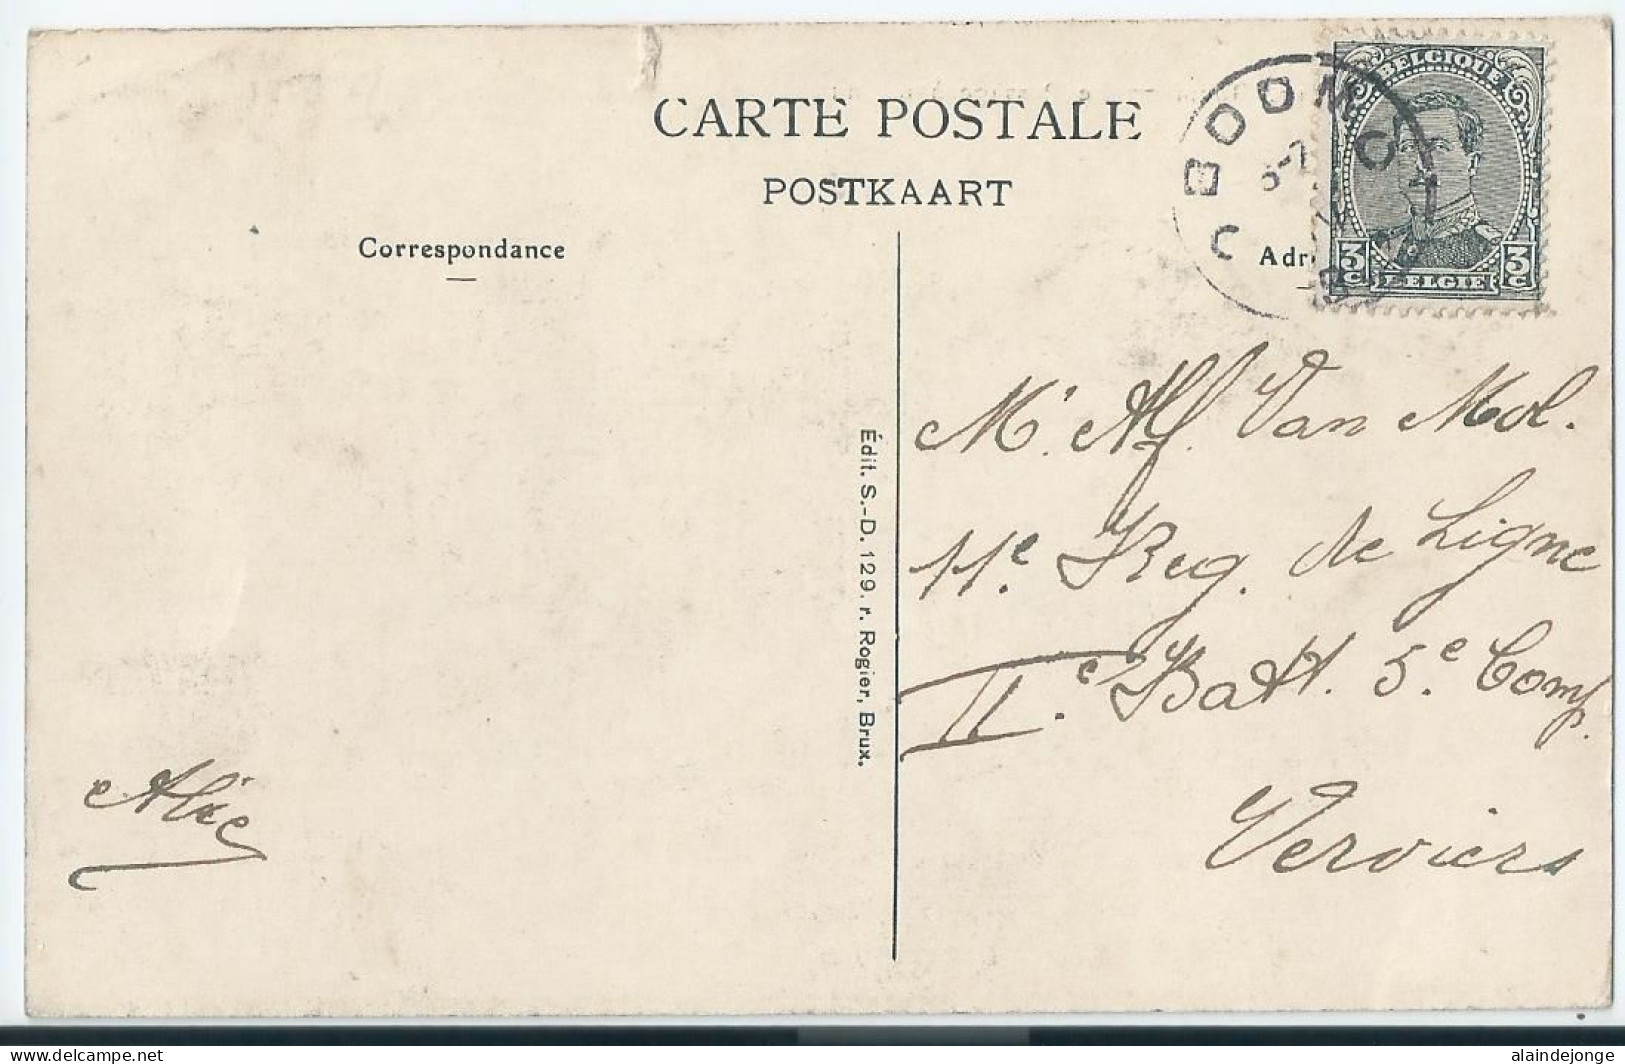 CARTE POSTALE
POSTKAART
Correspondance
Adr
BOOM
BELGIQUE
3c 3c
BELGIË
Édit. S.-D. 129. r. Rogier, Brux.
Mr. Alf. Van Mol.
11e. Reg. de Ligne
IIe. Batt. 5e. Comp.
Verviers
delcampe.net
alaindejonge